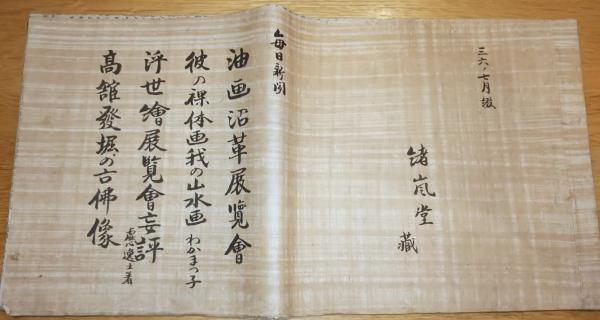 三六、七月綴
緒嵐堂 藏
毎日新聞
油画沿革展覧會
彼の裸体画我の山水画 わかまつ子
浮世繪展覧會妄評
高舘發掘の古佛像
逸士著